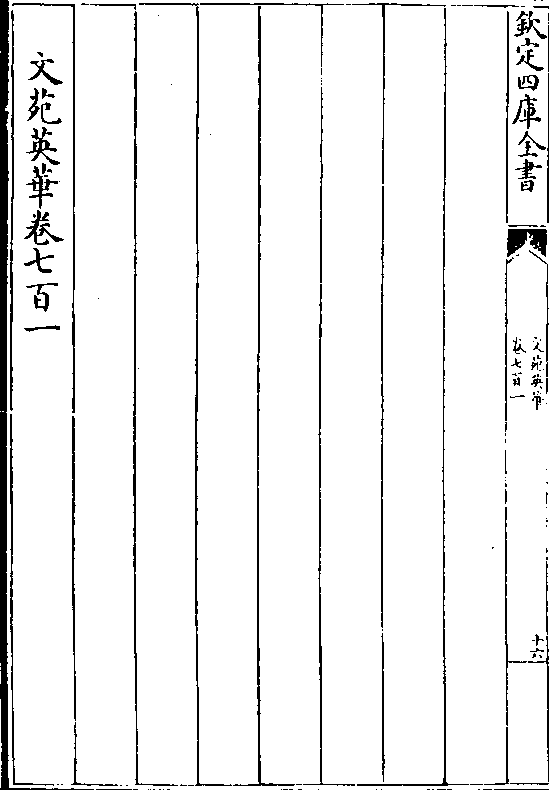 欽定四庫全書
文苑英華
卷七百一
十六
文苑英華卷七百一